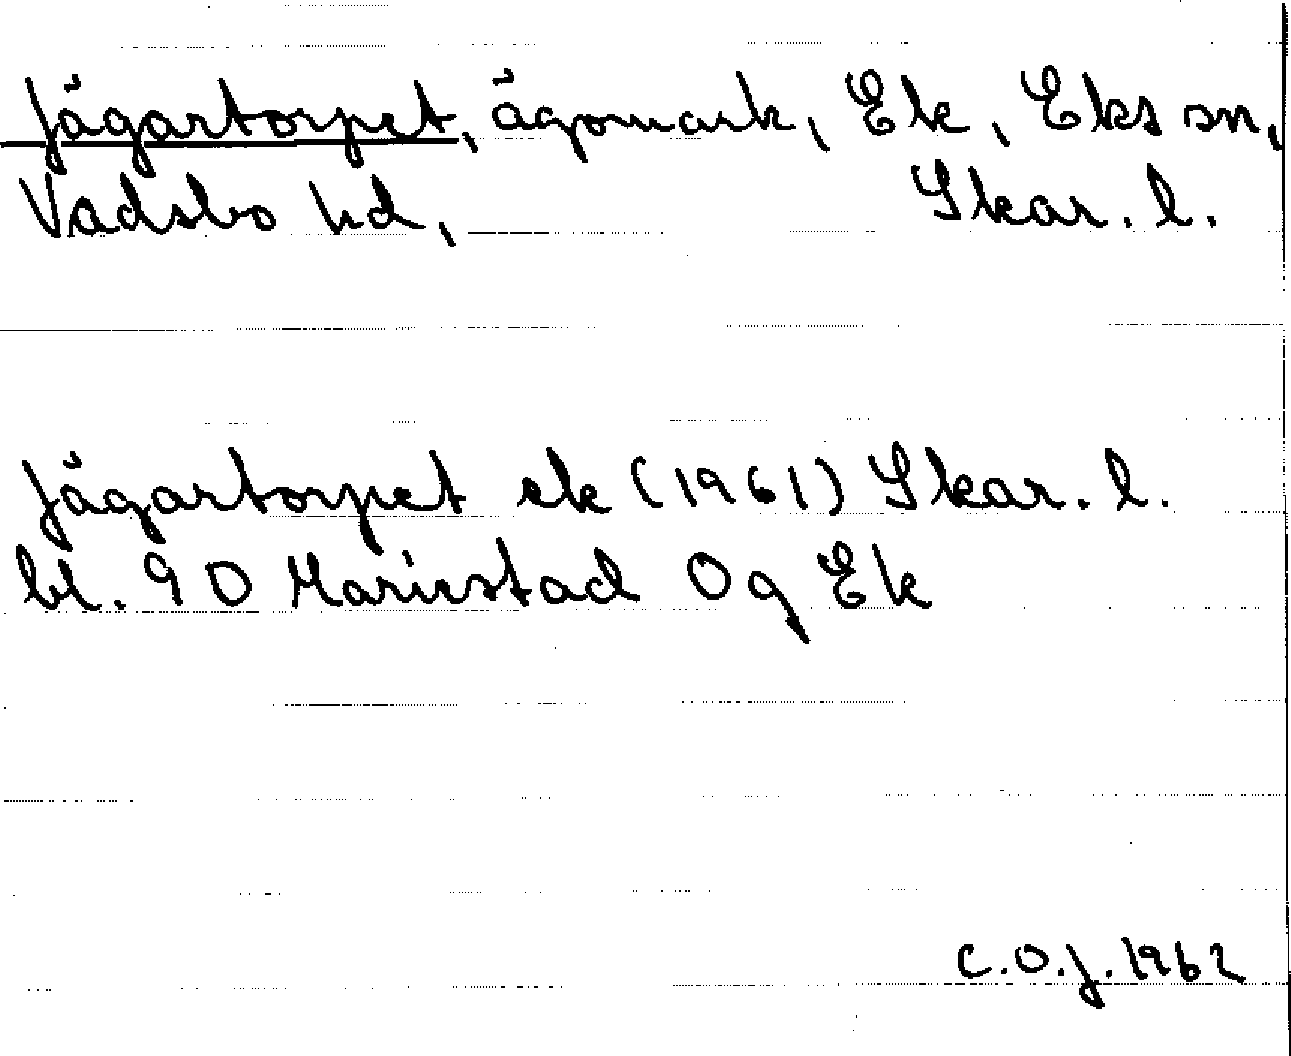 Jägartorpet, ägomark, Ek, Eks sn,
Vadsbo hd, Skar. l.
Jägartorpet ek (1961) Skar. l.
bl. 90 Mariestad Og Ek
C.O.J. 1962